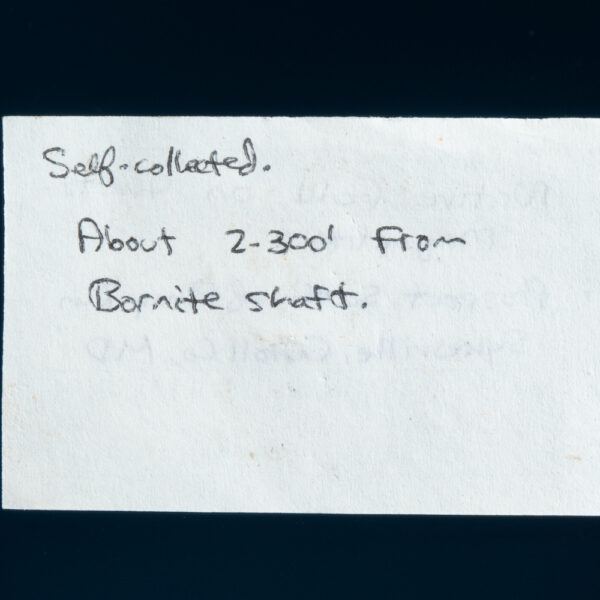 Self-collected.
About 2-300' from
Bornite shaft.